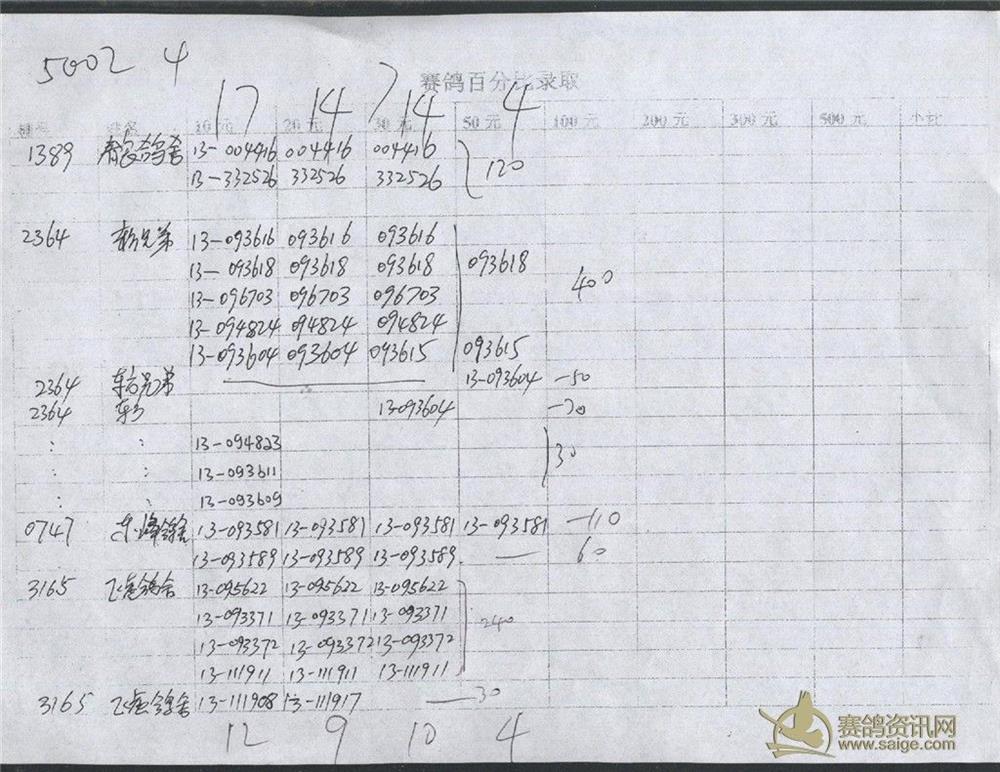 5002 4
赛鸽百分比录取
17 14 7 14 4
棚号 姓名 10元 20元 30元 50元 100元 200元 300元 500元 小计
1389 鸽舍 13-004416 004416 004416
13-332526 332526 332526 120
2364 兄弟 13-093616 093616 093616
13-093618 093618 093618 093618
13-096703 096703 096703 400
13-094824 094824 094824
13-093604 093604 093615 093615
2364 兄弟 13-093604 -50
2364 13-093604 -30
: : 13-094823
: : 13-093611 30
: : 13-093609
0747 13-093581 13-093581 13-093581 13-093581 -110
13-093589 13-093589 13-093589 — 60
3165 飞虎鸽舍 13-095622 13-095622 13-095622
13-093371 13-093371 13-093371 240
13-093372 13-093372 13-093372
13-111911 13-111911 13-111911
3165 飞虎鸽舍 13-111908 13-111917 — 30
12 9 10 4
赛鸽资讯网
www.saige.com